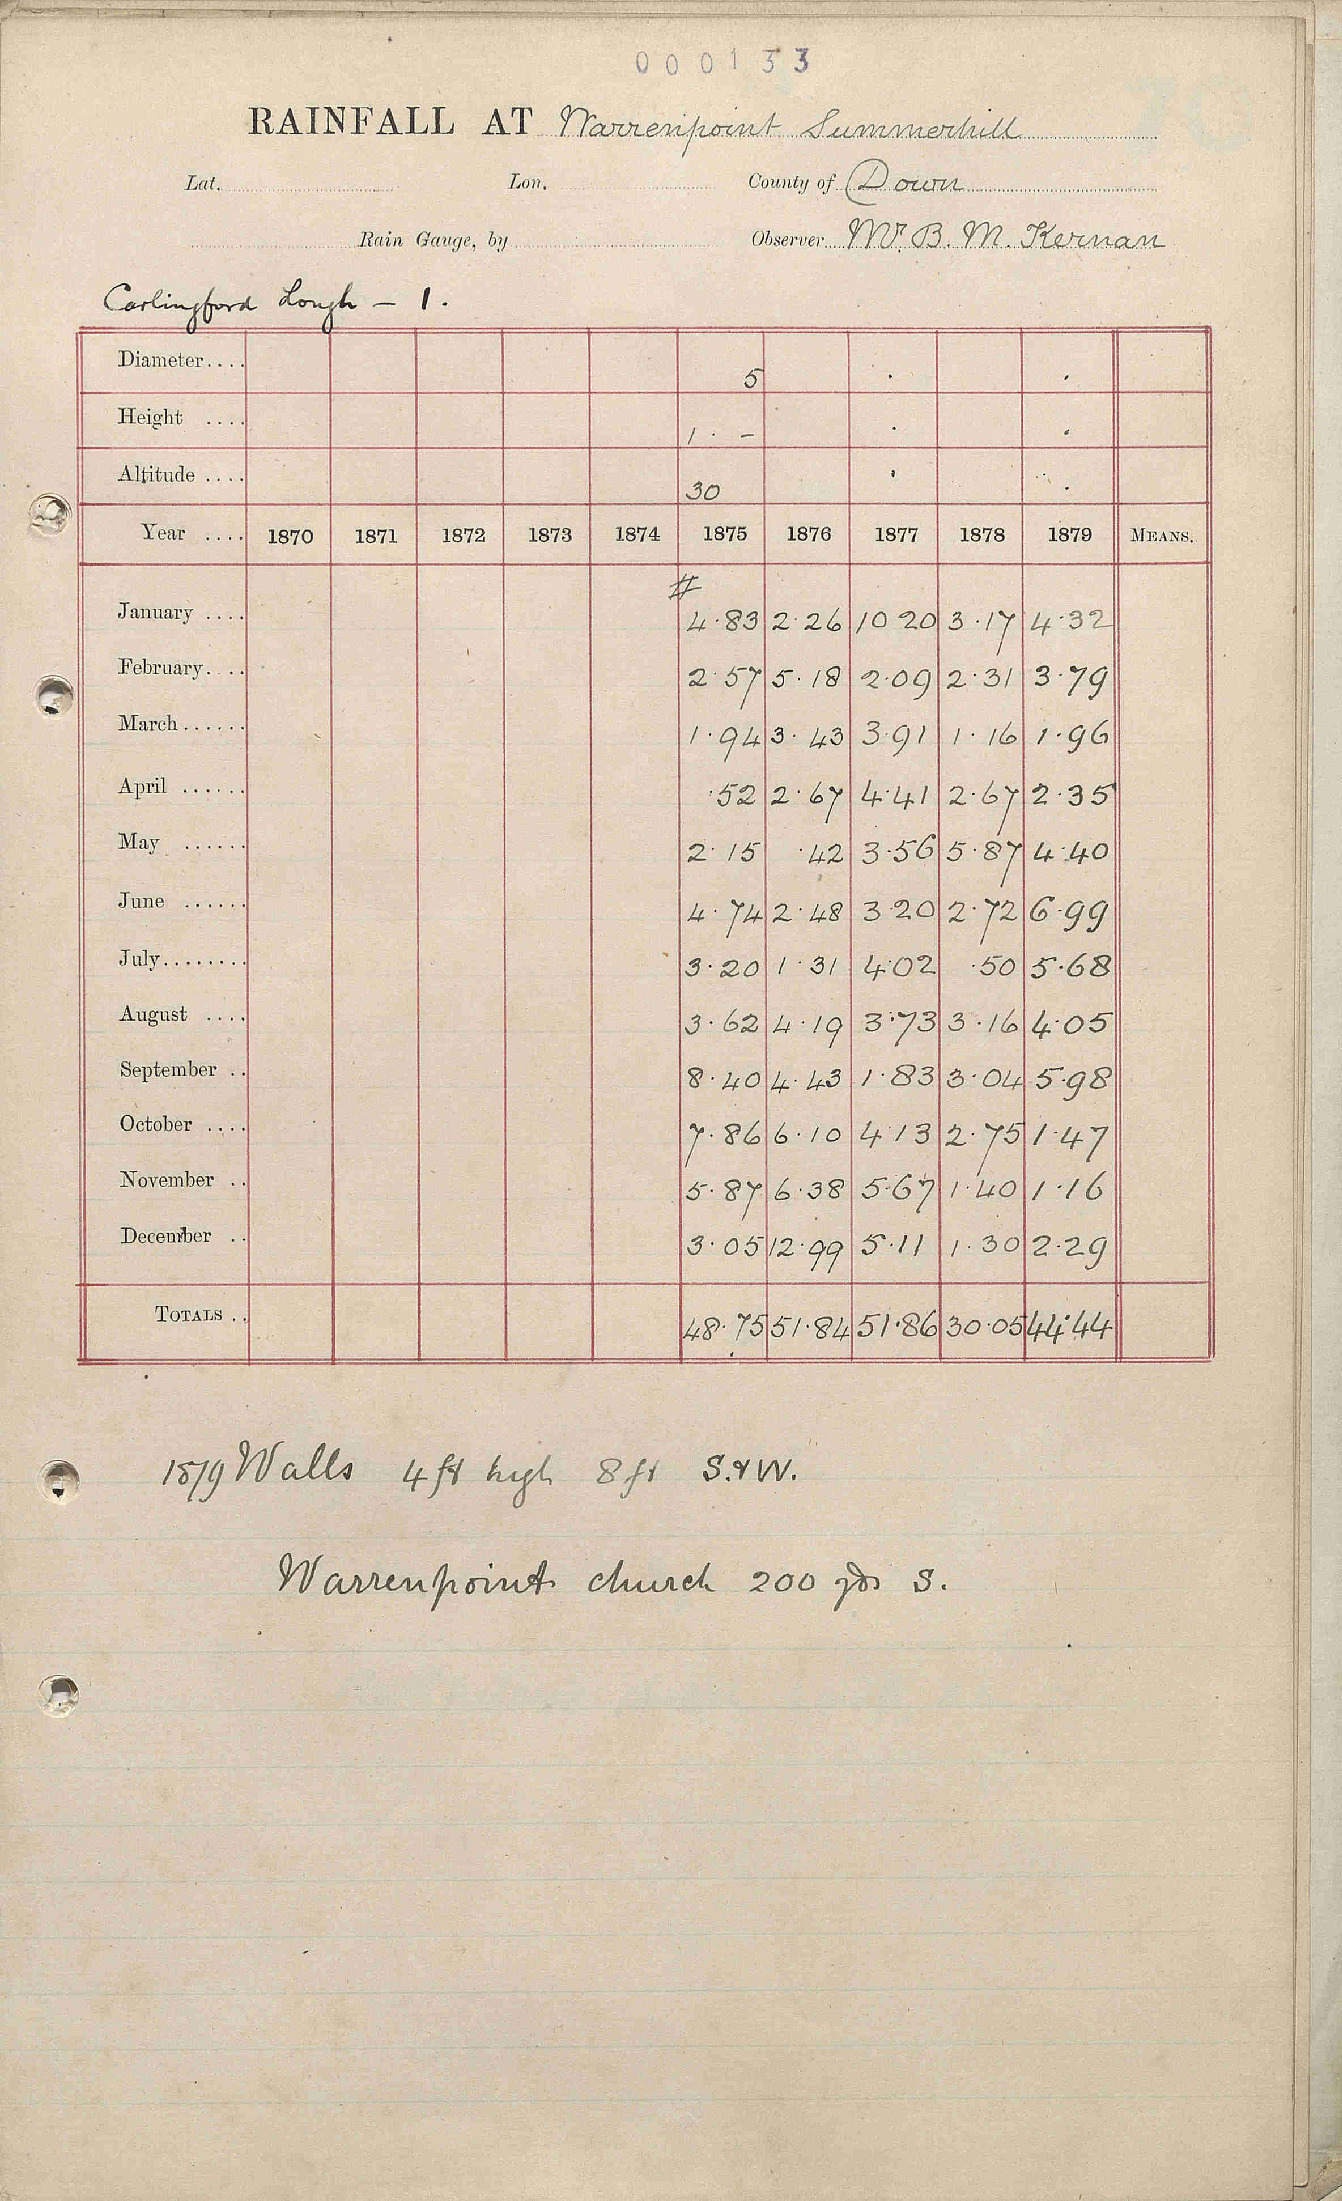 000133
RAINFALL AT Warrenpoint Summerhill
Lat. Lon. County of Down
Rain Gauge, by Observer Mr. B. M. Kernan
Carlingford Lough - 1.
Diameter.... 5 . .
Height .... 1 . - . .
Altitude .... 30 . .
Year .... 1870 1871 1872 1873 1874 1875 1876 1877 1878 1879 MEANS.
#
January .... 4.83 2.26 10 20 3.17 4.32
February.... 2.57 5.18 2.09 2.31 3.79
March...... 1.94 3.43 3.91 1.16 1.96
April ...... .52 2.67 4.41 2.67 2.35
May ...... 2.15 .42 3.56 5.87 4.40
June ...... 4.74 2.48 3.20 2.72 6.99
July........ 3.20 1.31 4.02 .50 5.68
August .... 3.62 4.19 3.73 3.16 4.05
September .. 8.40 4.43 1.83 3.04 5.98
October .... 7.86 6.10 4.13 2.75 1.47
November .. 5.87 6.38 5.67 1.40 1.16
December .. 3.05 12.99 5.11 1.30 2.29
TOTALS .. 48.75 51.84 51.86 30.05 44.44
1879 Walls 4 ft high 8 ft S.&W.
Warrenpoint church 200 yds S.